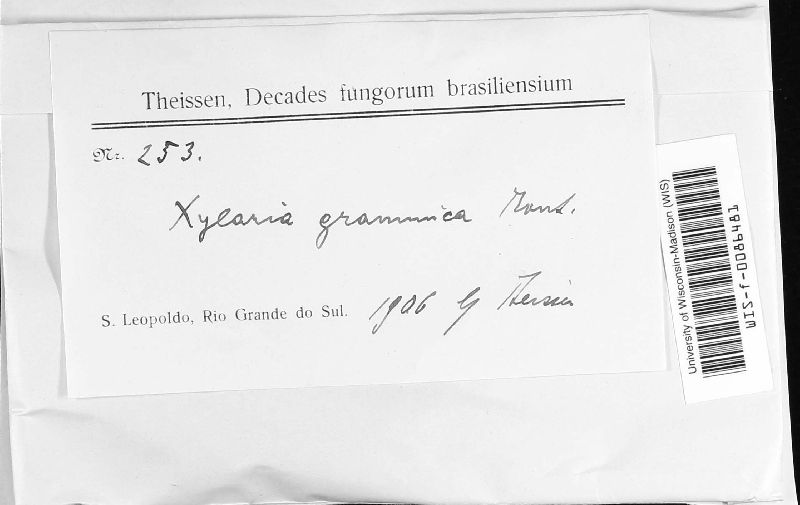 Theissen, Decades fungorum brasiliensium
Nr. 253.
Xylaria grammica Mont.
S. Leopoldo, Rio Grande do Sul. 1906 Theissen
University of Wisconsin-Madison (WIS)
WIS-f-0086481